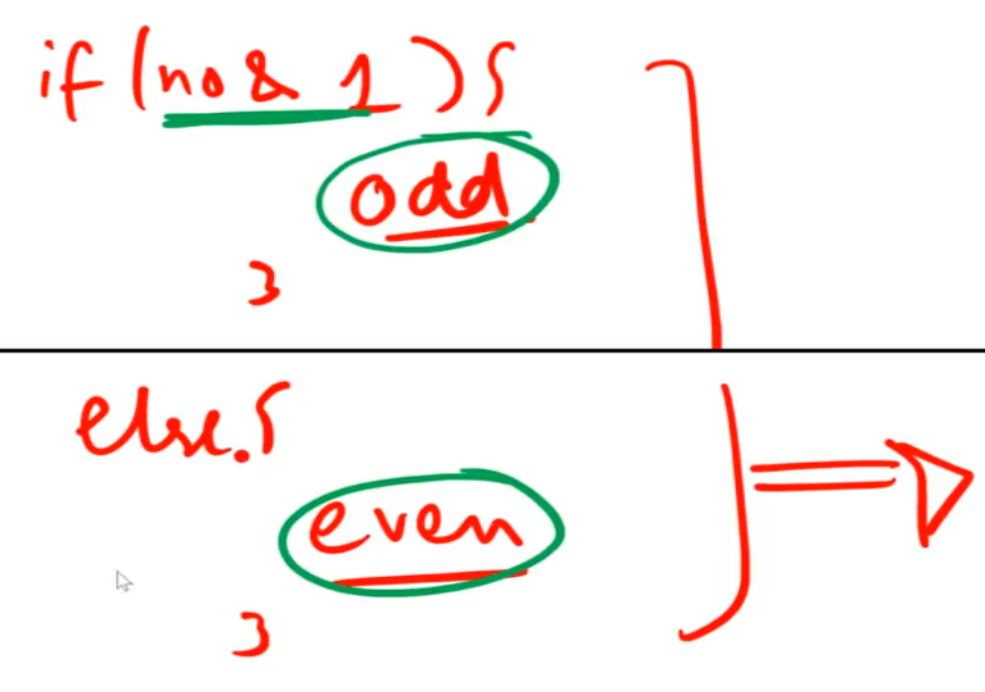 if (no & 1) {
odd
}
else {
even
}